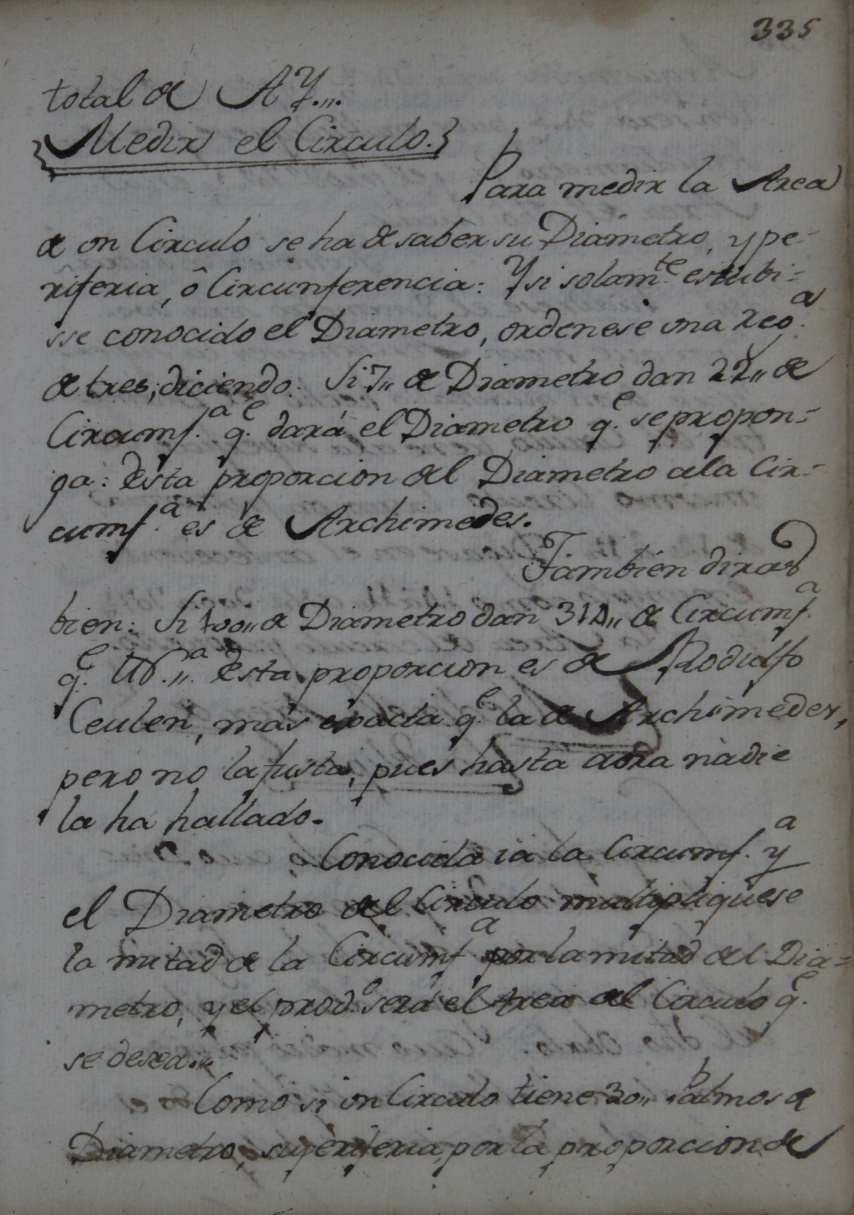 335
total de AY...
Medir el Circulo.
Para medir la Area
de vn Circulo se ha de saber su Diametro, y pe-
riferia, ô Circunferencia: Y si solam.te estubi-
sse conocido el Diametro, ordenese vna reg.a
de tres, diciendo: Si 7,, de Diametro dan 22,, de
Circumf.a q.e dará el Diametro q.e se propon-
ga: Esta proporcion del Diametro ala Cir-
cumf.a es de Archimedes.
Tambien diras
bien: Si 100,, de Diametro dan 314,, de Circumf.a
q.e Esta proporcion es de Rodulfo
Ceulen, mas exacta q.e la de Archimedes,
pero no la justa, pues hasta aora nadie
la ha hallado.
Conocida ia la Circumf.a y
el Diametro del Circulo multipliquese
la mitad de la Circumf.a por la mitad del Dia-
metro, y el prod.o será el Area del Circulo q.e
se desea.,,
Como si vn Circulo tiene 30,, Palmos de
Diametro, su periferia por la proporcion de